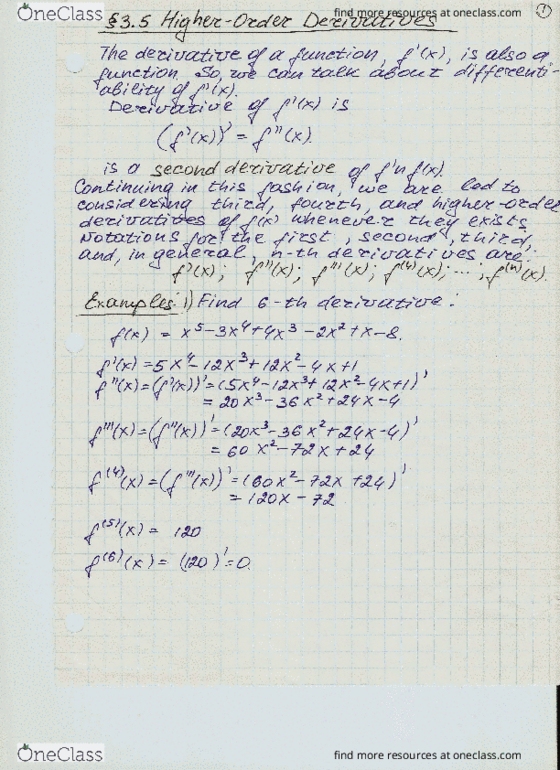 OneClass
find more resources at oneclass.com
1
§3.5 Higher-Order Derivatives
The derivative of a function, f'(x), is also a
function. So, we can talk about differenti-
ability of f'(x).
Derivative of f'(x) is
(f'(x))' = f''(x).
is a second derivative of f'n f(x).
Continuing in this fashion, we are led to
considering third, fourth, and higher-order
derivatives of f(x) whenever they exists.
Notations for the first, second, third,
and, in general, n-th derivatives are:
f'(x); f''(x); f'''(x); f^(4)(x); ..., f^(n)(x).
Examples: 1) Find 6-th derivative:
f(x) = x^5-3x^4+4x^3-2x^2+x-8.
f'(x) = 5x^4-12x^3+12x^2-4x+1
f''(x) = (f'(x))' = (5x^4-12x^3+12x^2-4x+1)'
= 20x^3-36x^2+24x-4
f'''(x) = (f''(x))' = (20x^3-36x^2+24x-4)'
= 60x^2-72x+24
f^(4)(x) = (f'''(x))' = (60x^2-72x+24)'
= 120x-72
f^(5)(x) = 120
f^(6)(x) = (120)' = 0.
OneClass
find more resources at oneclass.com